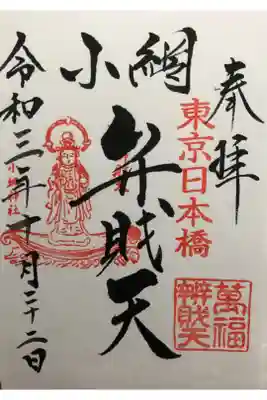 奉拝
東京日本橋
小網
弁財天
萬福
辨財天
小網神社
令和三年十一月二十二日